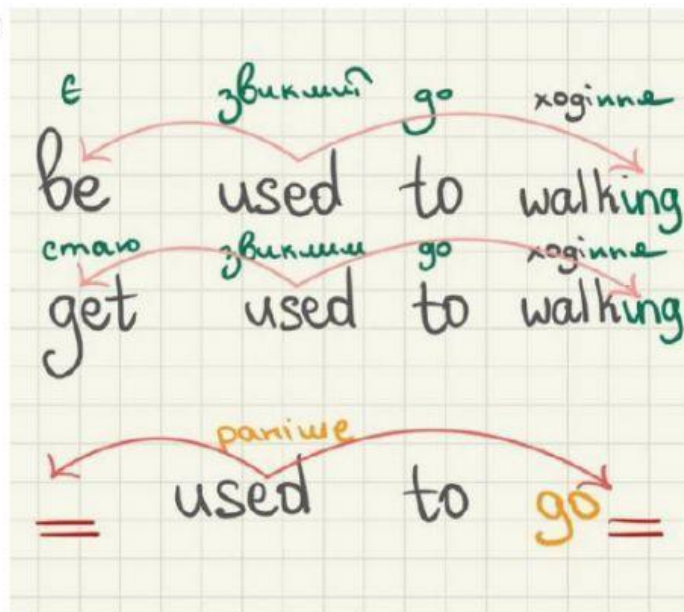 є звиклий до ходіння
be used to walking
стаю звиклим до ходіння
get used to walking
раніше
used to go